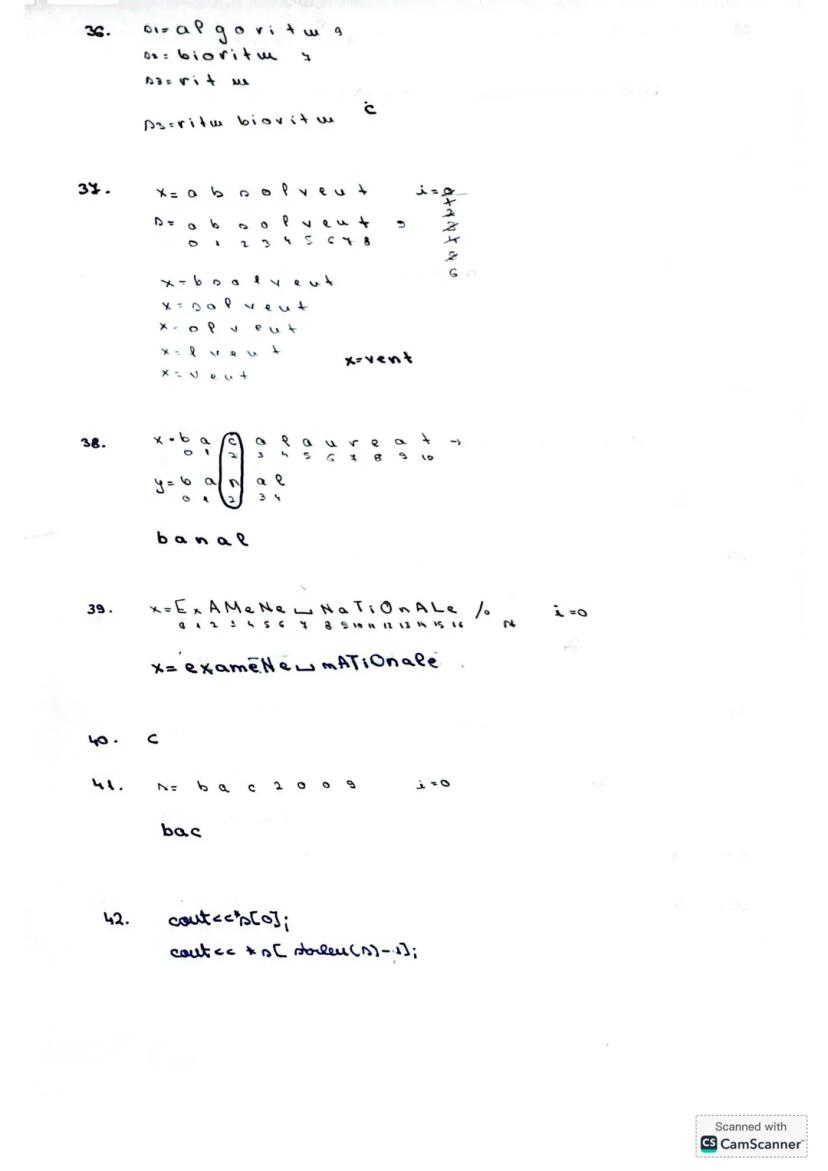 36. s1= a l g o r i t m 9
s2= b i o r i t m 7
s3= r i t m
s3=ritm bioritm c
37. x= a b s o l v e n t i=0
1
2
3
4
5
6
s= a b s o l v e n t 9
0 1 2 3 4 5 6 7 8
x=b s o l v e n t
x=s o l v e n t
x=o l v e n t
x=l v e n t x=vent
x=v e n t
38. x=b a c a l a u r e a t →
0 1 2 3 4 5 6 7 8 9 10
y=b a n a l
0 1 2 3 4
banal
39. x=ExAMeNe ⌴ NaTiOnALe i=0
0 1 2 3 4 5 6 7 8 9 10 11 12 13 14 15 16
x= exameNe ⌴ mATiOnale
40. c
41. s= b a c 2 0 0 9 i=0
bac
42. cout<<s[0];
cout<< *s[ strlen(s)-1];
Scanned with
CS CamScanner